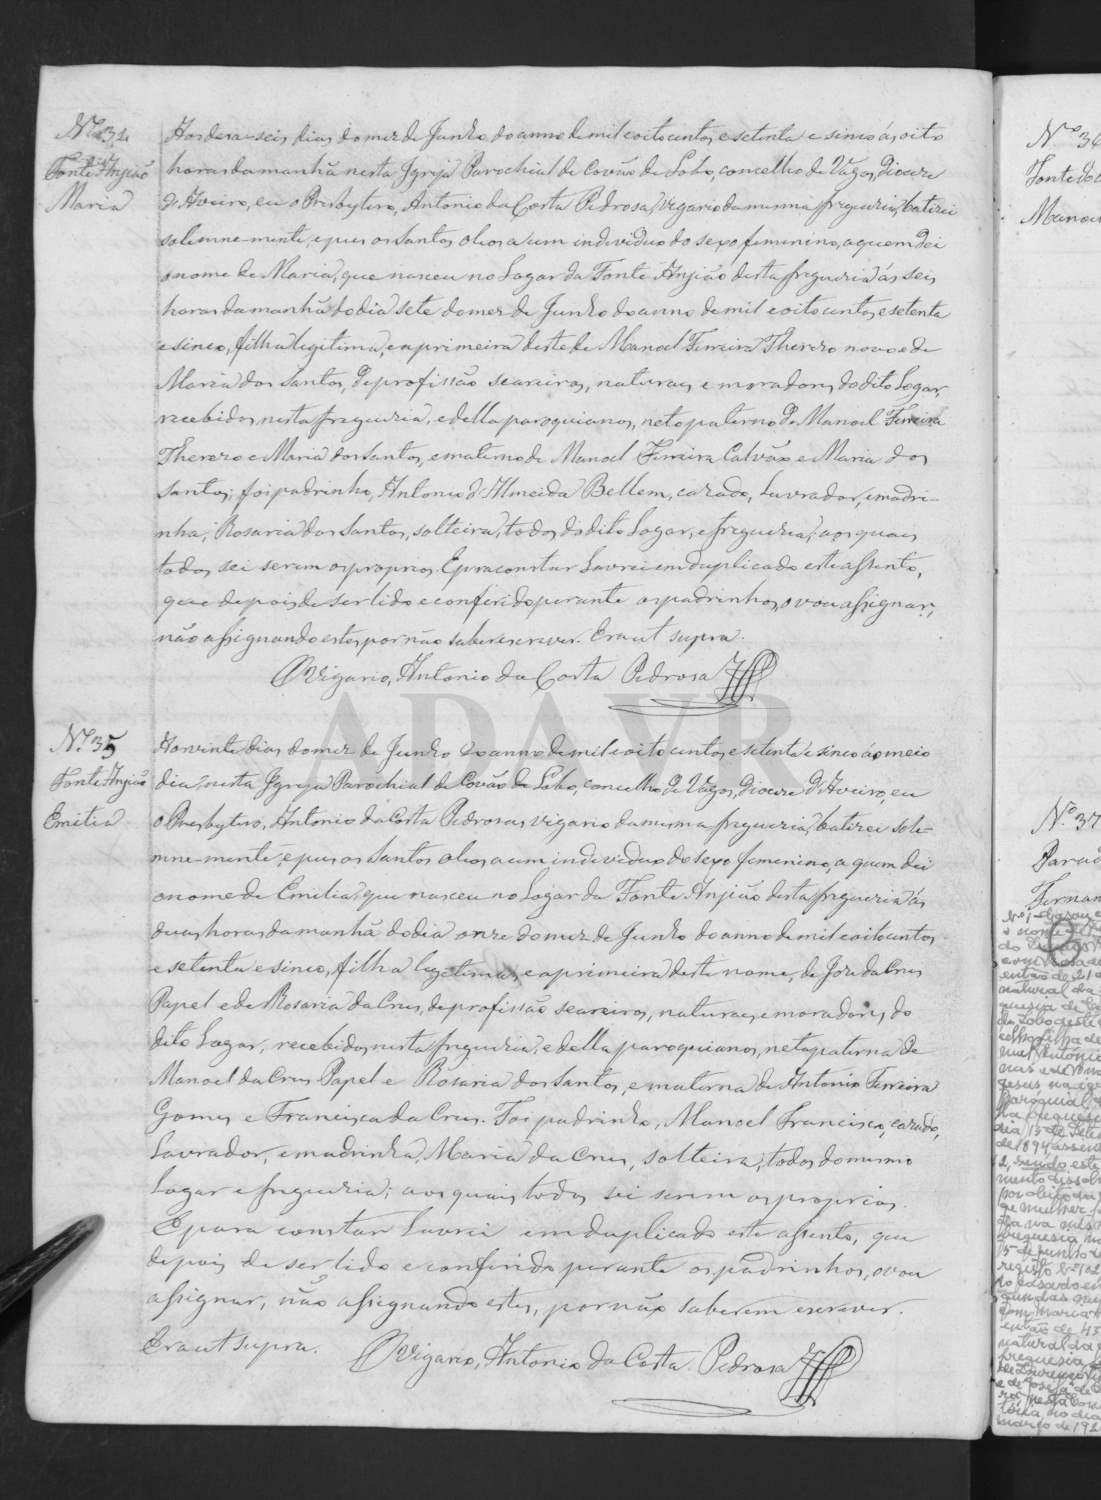 Nº 34
Fonte Anjião
Maria
Aos deza-seis dias do mez de Junho do anno de mil e oito centos, e setenta e sinco ás oito
horas da manhã nesta Igreja Parochial de Covão de Lobo, concelho de Vagos, Diocese
d'Aveiro, eu o Presbytero, Antonio da Costa Pedrosa, Vigario da mesma freguezia, batizei
solemne-mente, e puz os Santos oleos a um individuo do sexo femenino, a quem dei
o nome de Maria, que nasceu no Logar da Fonte Anjião desta freguezia ás seis
horas da manhã do dia sete do mez de Junho do anno de mil e oito centos, e setenta
e sinco, filha legitima, e a primeira deste de Manoel Ferreira Therezo novo e de
Maria dos Santos, de profissão seareiros, naturaes e moradores do dito Logar,
recebidos nesta freguezia, e della paroquianos, neto paterno de Manoel Ferreira
Therezo e Maria dos Santos, e materno de Manoel Ferreira Calvão e Maria dos
Santos; foi padrinho, Antonio d'Almeida Bellem, cazado, Lavrador, e madri-
nha, Rosaria dos Santos, solteira, todos do dito Logar, e freguezia, aos quaes
todos sei serem os proprios. E para constar Lavrei em duplicado este assento,
que depois de ser lido e conferido perante os padrinhos, o vou assignar,
não assignando estes por não saber escrever. Era ut supra.
O Vigario, Antonio da Costa Pedrosa
ADAVR
Nº 35
Fonte Anjião
Emilia
Aos vinte dias do mez de Junho do anno de mil e oito centos, e setenta e sinco ao meio
dia, nesta Igreja Parochial de Covão de Lobo, concelho de Vagos, Diocese d'Aveiro, eu
o Presbytero, Antonio da Costa Pedrosa, vigario da mesma freguezia, batizei sole-
mne-mente, e puz os Santos oleos a um individuo do sexo femenino, a quem dei
o nome de Emilia, que nasceu no Logar da Fonte Anjião desta freguezia ás
duas horas da manhã do dia onze do mez de Junho do anno de mil e oito centos
e setenta e sinco, filha legitima, e a primeira deste nome, de José da Crus
Papel e de Rosaria da Crus, de profissão seareiros, naturaes e moradores do
dito Logar, recebidos nesta freguezia, e della paroquianos, neta paterna de
Manoel da Crus Papel e Rosaria dos Santos, e materna de Antonio Ferreira
Gomes e Francisca da Crus. Foi padrinho, Manoel Francisco, cazado,
Lavrador, e madrinha, Maria da Crus, solteira, todos do mesmo
Logar e freguezia; aos quaes todos sei serem os proprios.
E para constar Lavrei em duplicado este assento, que
depois de ser lido e conferido perante os padrinhos, o vou
assignar, não assignando estes, por não saberem escrever.
Era ut supra.
O Vigario, Antonio da Costa Pedrosa
Nº 36
Fonte do
Manoel
Nº 37